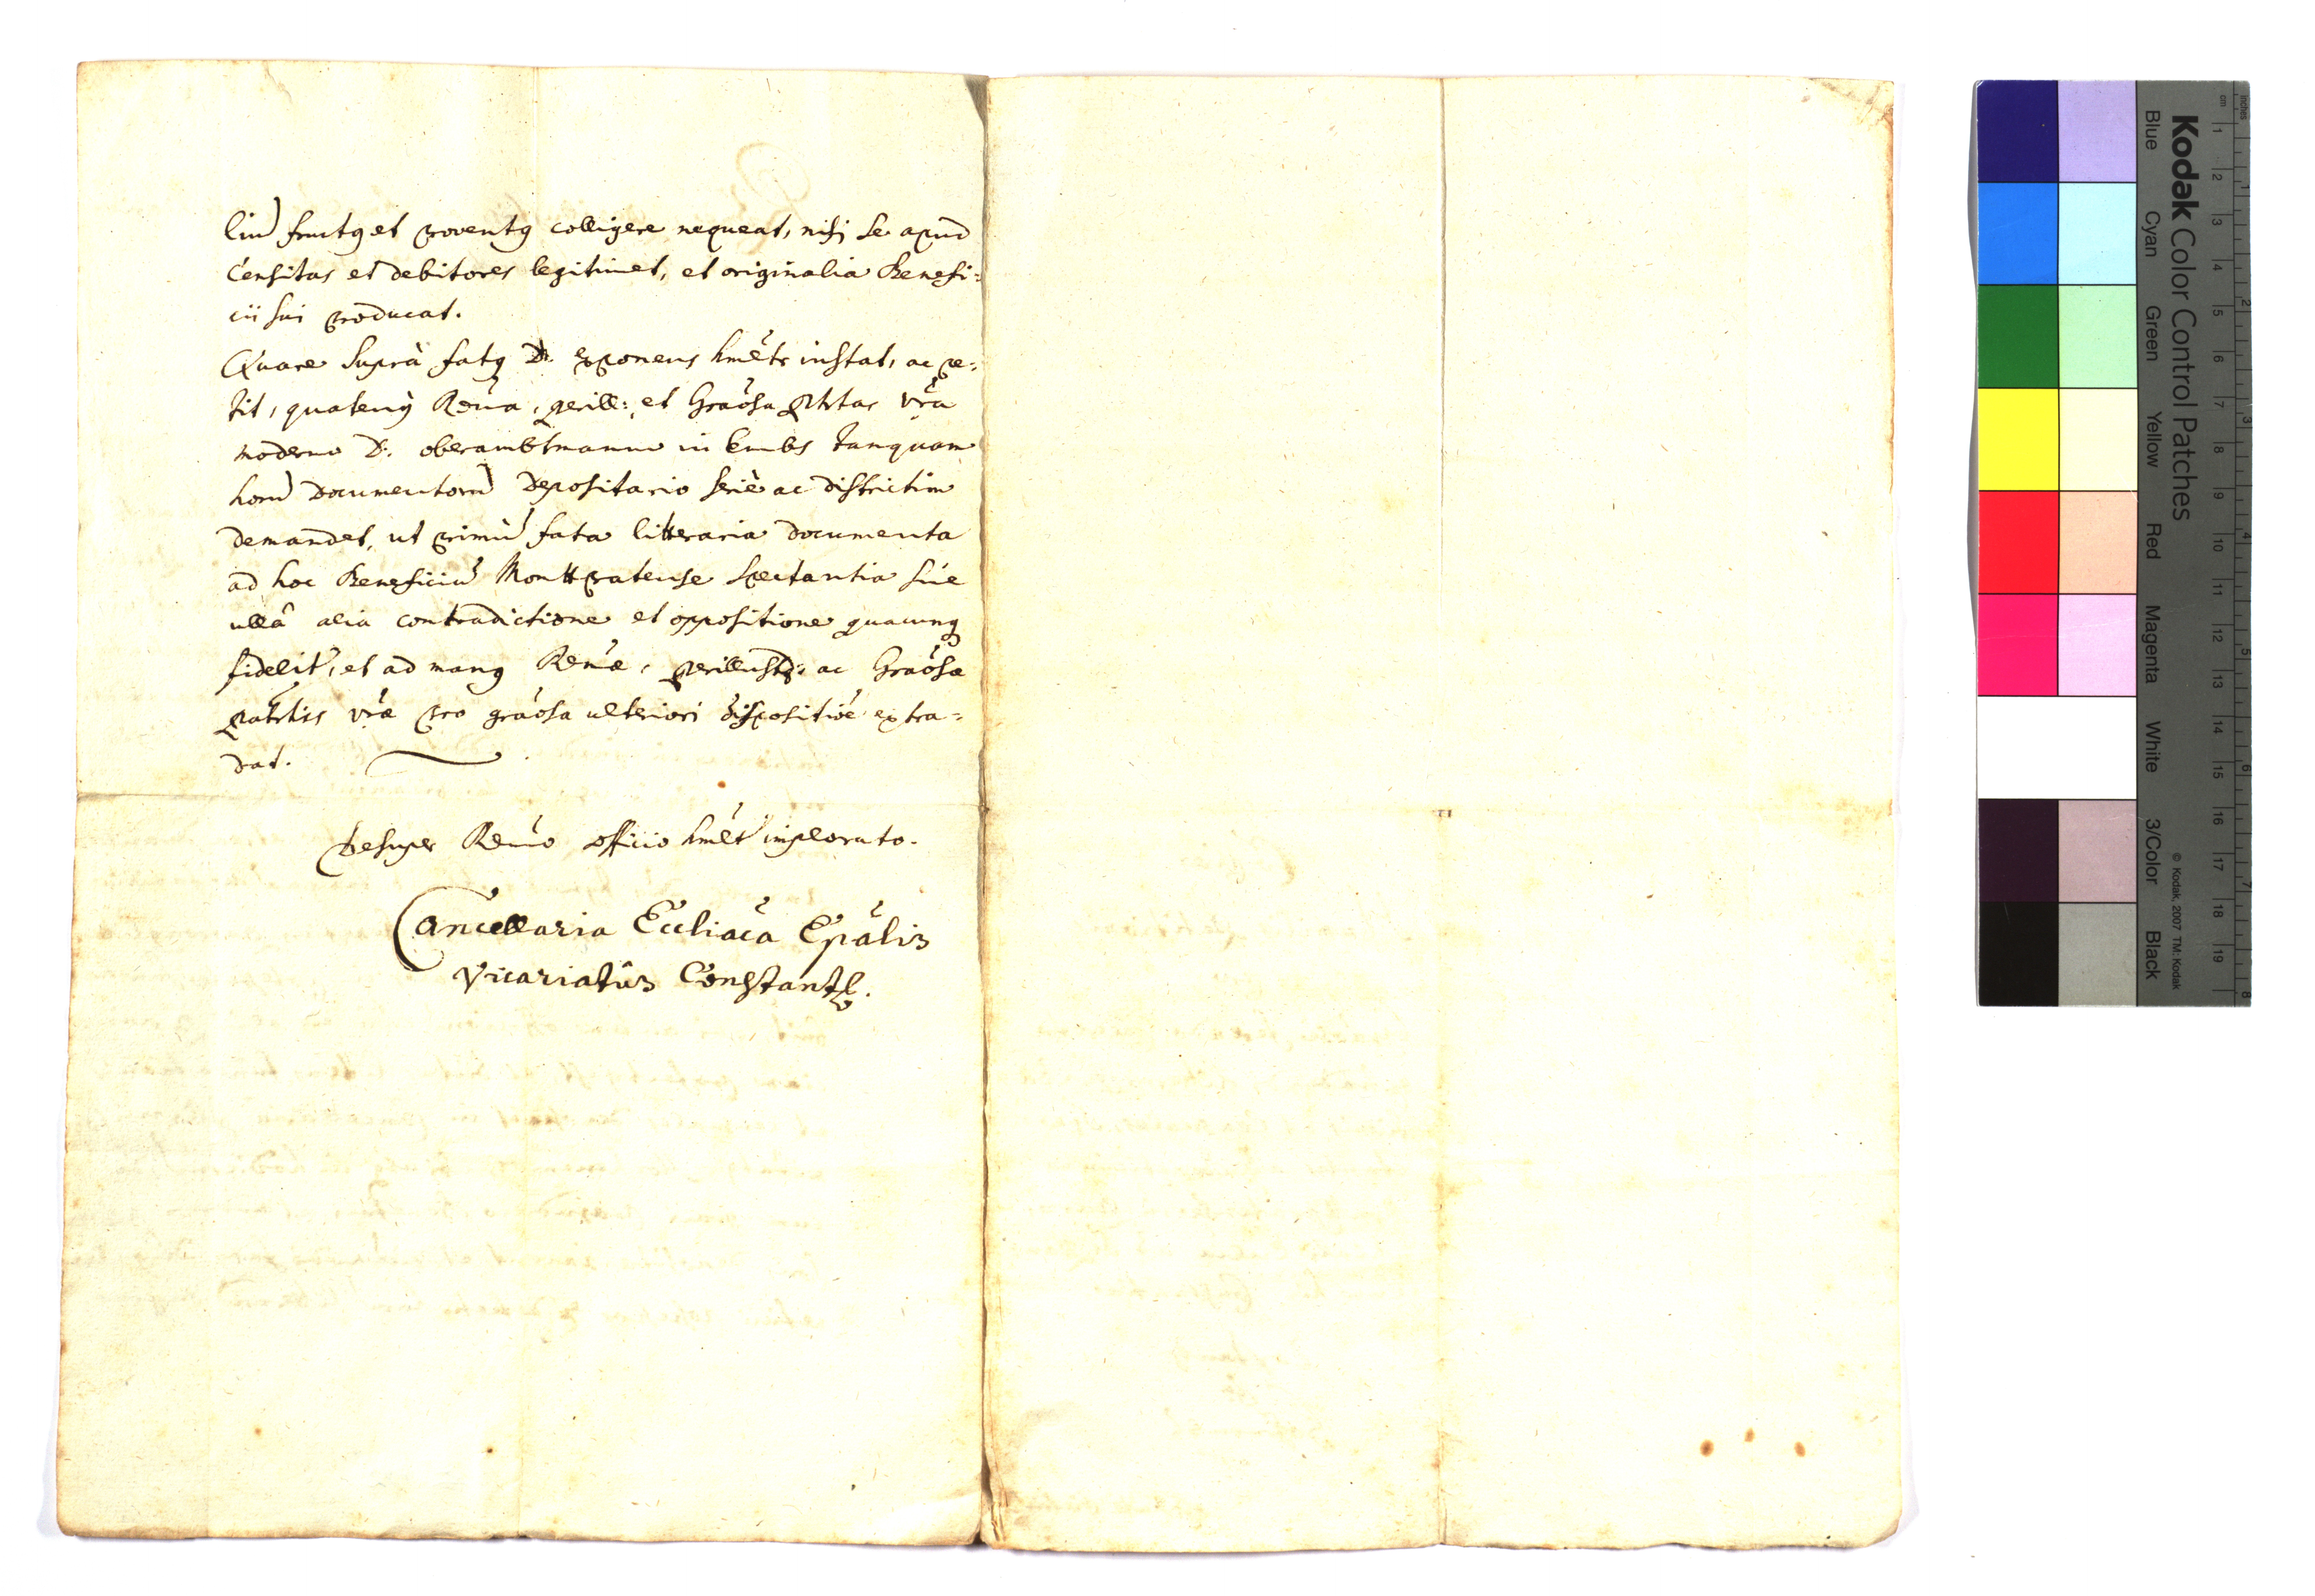 liu̅ fructꝯ et proventꝯ colligere nequeat, nisi se apud
Censitas et debitores legitimet, et originalia Benefi=
cii sui producat.
Quare suprà fatꝯ D. exponens hmẽtr instat, ac pe=
tit, quatenꝯ Rẽma, perill: et Graõsa Ptrtas vr̃a
moderno D. oberambtmanno in Embs tanquam
horu̅ documentoru̅ depositario seriè ac districtim
demandet, ut primu̅ fata litteraria documenta
ad hoc Beneficiu̅ Monttpratense spectantia sine
ullâ alia contradictione et oppositione quacunꝗ
fidelit̃, et ad manꝯ Rẽmæ, perillustr: ac Graõsæ
patrtis vr̃æ pro graõsa ulteriori dispositiõe extra=
dat.
Desuper Rẽmo officio hmẽt̃ implorato.
Cancellaria Eccliaca Epalis
Vicariatûs Constants.
Kodak Color Control Patches
Blue Cyan Green Yellow Red Magenta White 3/Color Black
© Kodak, 2007 TM: Kodak
inches 1 2 3 4 5 6 7 8
cm 1 2 3 4 5 6 7 8 9 10 11 12 13 14 15 16 17 18 19